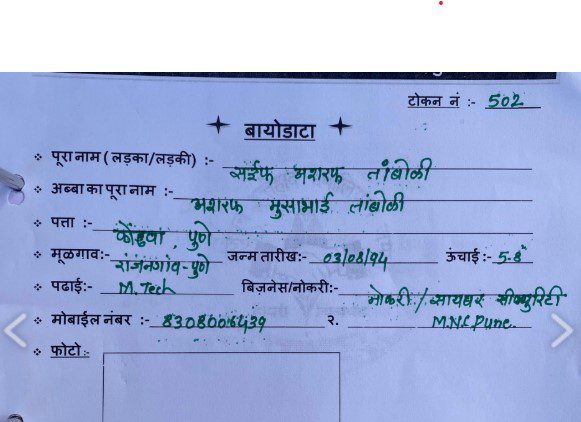 टोकन नं :- 502
बायोडाटा
पूरा नाम ( लड़का/लड़की) :- सईफ अशरफ तांबोळी
अब्बा का पूरा नाम :- अशरफ मुसाभाई तांबोळी
पत्ता :- कोंढवा, पुणे
मूळगाव:- रांजनगांव-पुणे जन्म तारीख:- 03/08/94 ऊंचाई :- 5-8"
पढाई :- M.Tech बिज़नेस/नोकरी:- नोकरी / सायबर सीक्युरिटी
मोबाईल नंबर :- 8308006439 २. M.N.C Pune.
फोटो :-